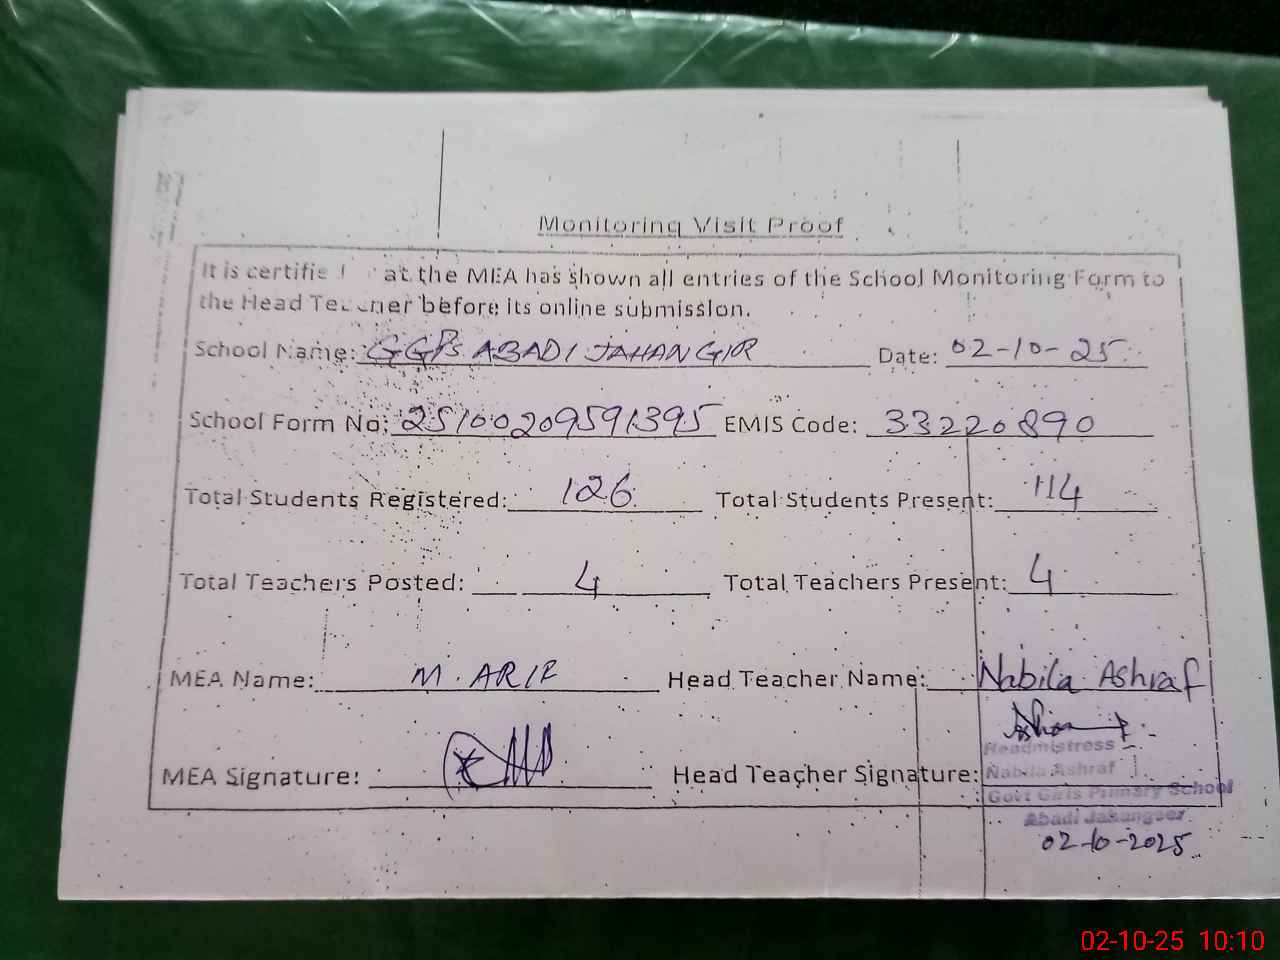 Monitoring Visit Proof
It is certifie at the MEA has shown all entries of the School Monitoring Form to
the Head Teacher before its online submission.
School Name: GGPS ABADI JAHANGIR Date: 02-10-25
School Form No: 25100209591395 EMIS Code: 33220890
Total Students Registered: 126 Total Students Present: 114
Total Teachers Posted: 4 Total Teachers Present: 4
MEA Name: M. ARIF Head Teacher Name: Nabila Ashraf
MEA Signature: Head Teacher Signature:
Headmistress
Nabila Ashraf
Govt Girls Primary School
Abadi Jahangeer
02-10-2025
02-10-25 10:10